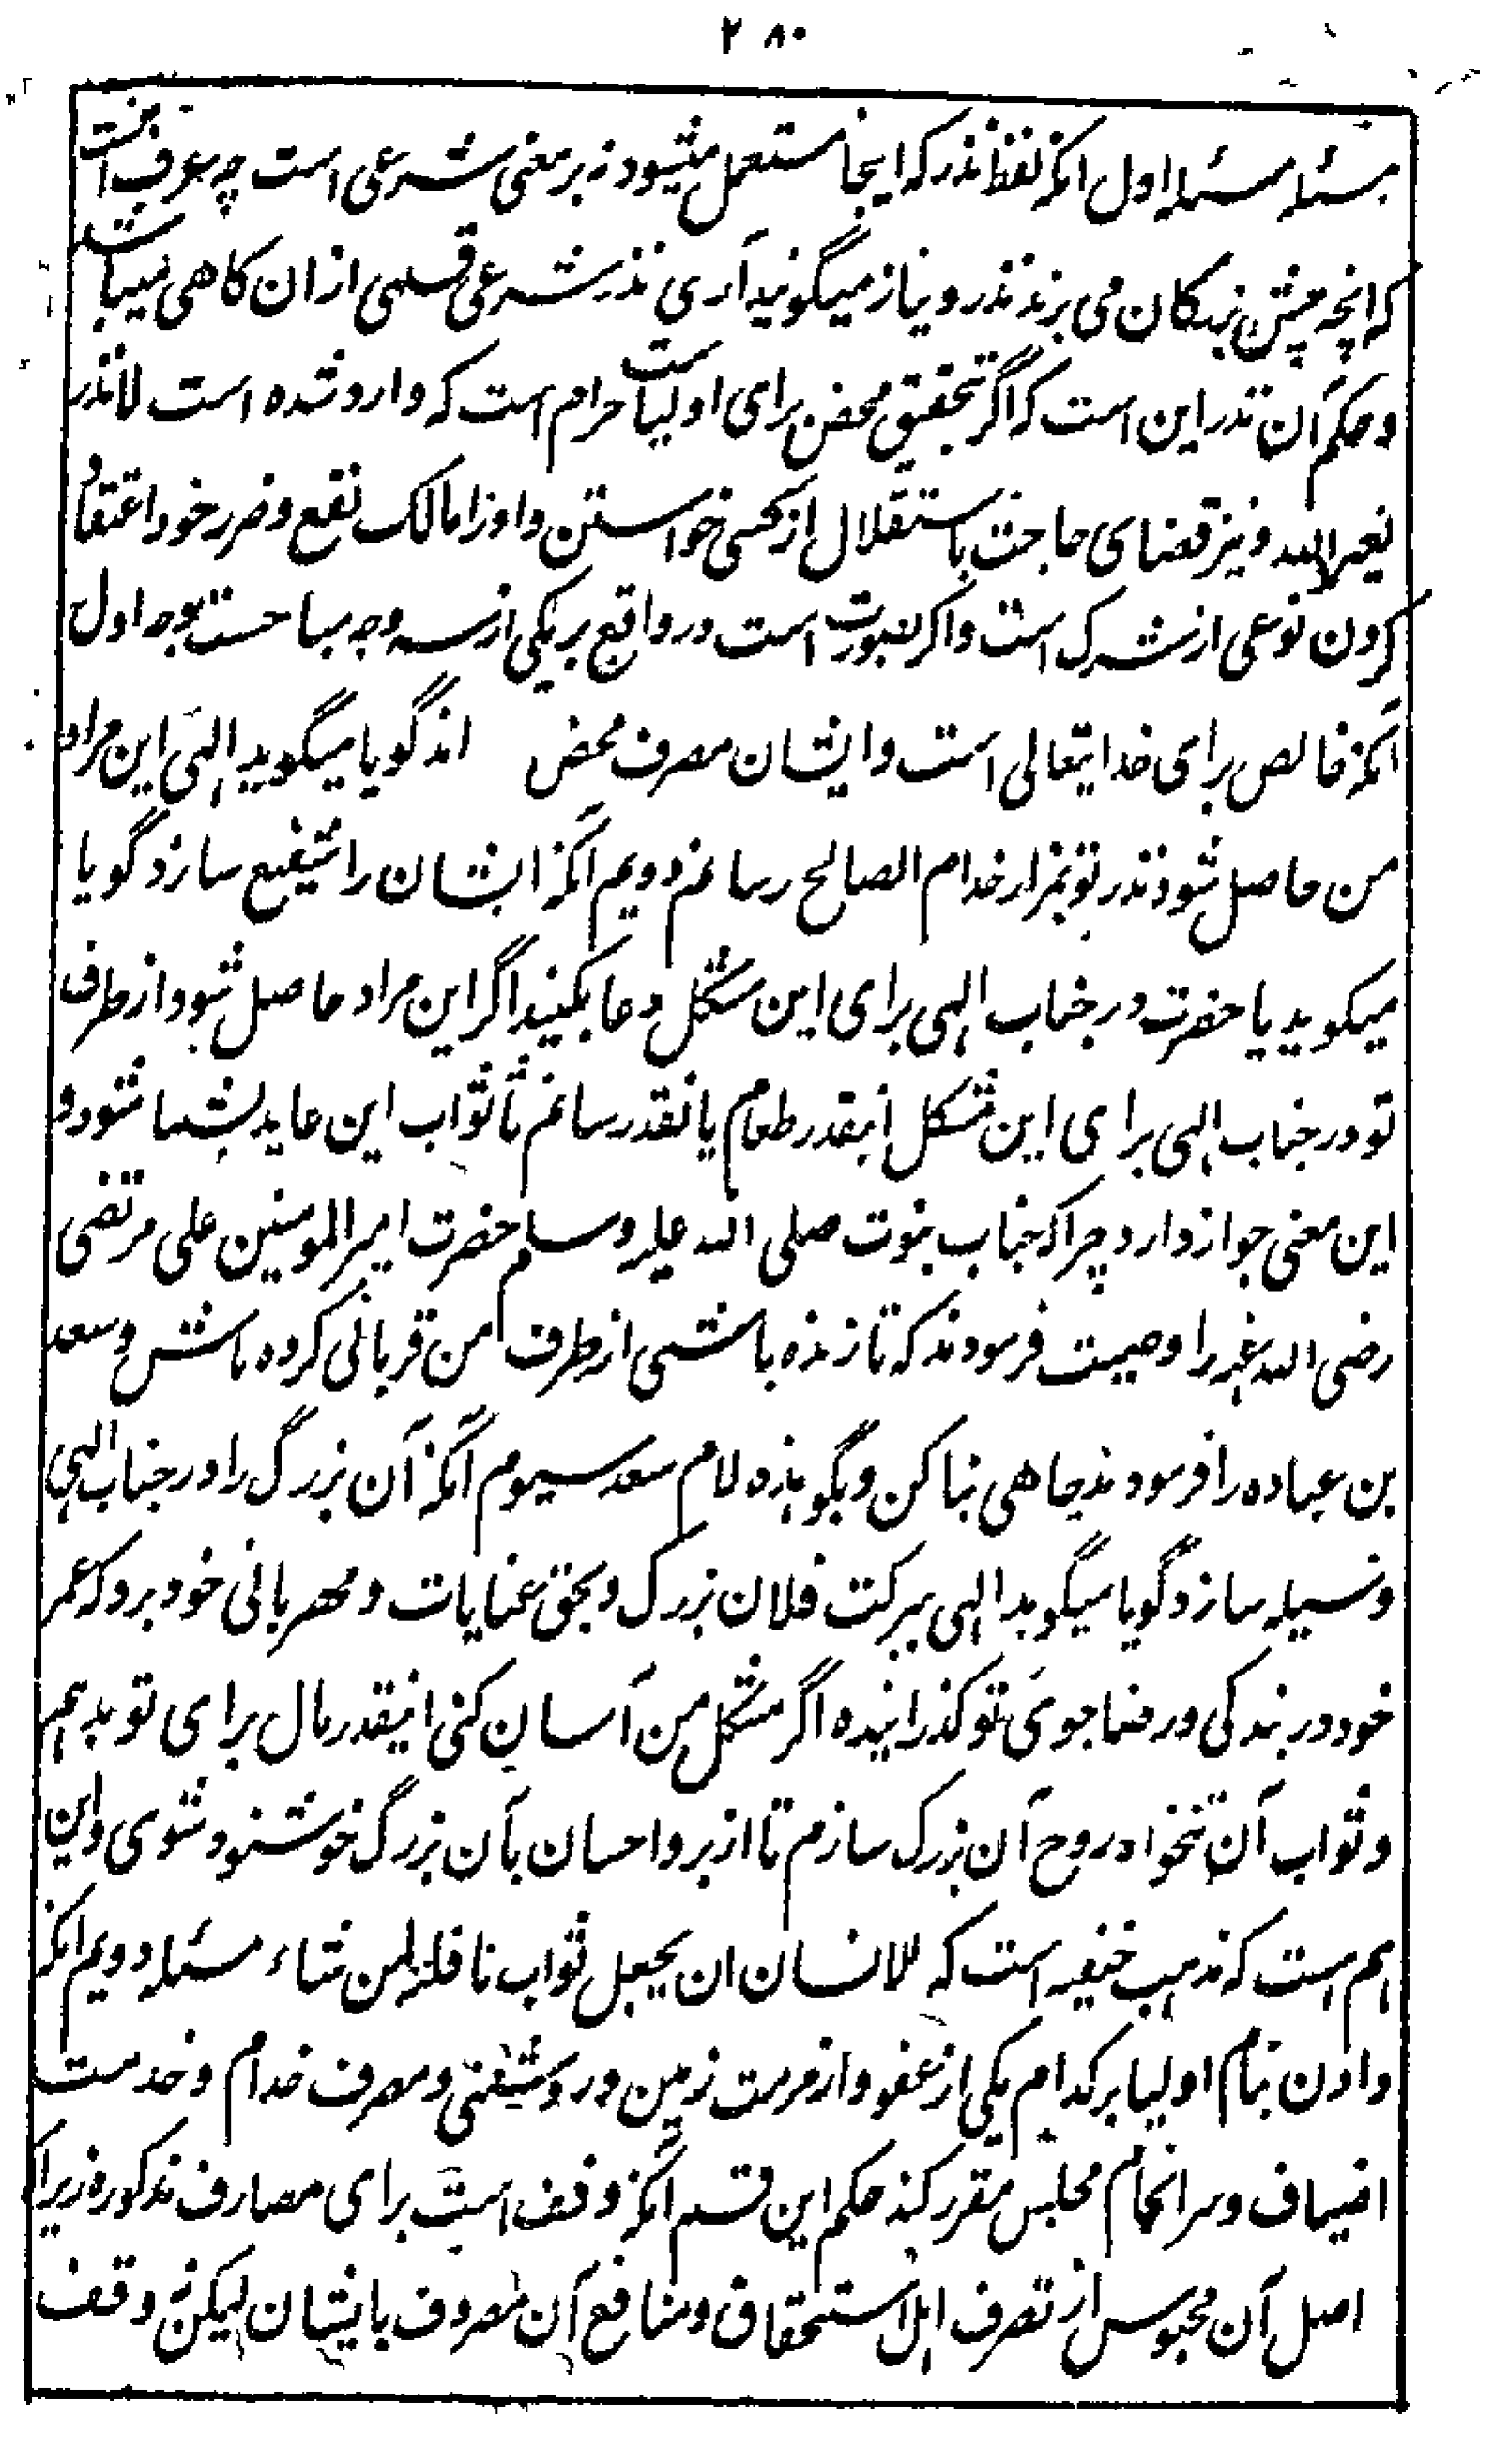 ۲۸۰
مسئله مسئله اول آنکه لفظ نذر که اینجا مستعمل میشود نه بر معنی شرعی است چه عرف آنست
که انچه پیش بزرکان می برند نذر و نیاز میگویند آری نذر شرعی قسمی ازان کاهی میباشد
و حکم آن نذر این است که اگر تحقیق محض برای اولیاست حرام است که وارد شده است لا نذر
لغیر الله و نیز قضای حاجت باستقلال از کسی خواستن و اورا مالک نفع و ضرر خود اعتقاد
کردن نوعی از شرک است و اگر نه در واقع بر یکی از سه وجه مباحست وجه اول
آنکه خالص برای خدایتعالی است و ایشان مصرف محض اند گویا میگوید الهی این مراد
من حاصل شود نذر تو بمزار خدام الصالح رسانم دویم آنکه ایشان را شفیع سازد گویا
میکوید یا حضرت در جناب الهی برای این مشکل دعا بکنید اگر این مراد حاصل شود از طرف
تو در جناب الهی برای این مشکل اینقدر طعام یا نقد رسانم تا ثواب این عاید بشما شود و
این معنی جواز دارد چرا که جناب نبوت صلی الله علیه وسلم حضرت امیر المومنین علی مرتضی
رضی الله عنه را وصیت فرمودند که تا زنده باشی از طرف من قربانی کرده باش و سعد
بن عباده را فرمودند چاهی بنا کن و بگو هذه لام سعد سیوم آنکه آن بزرگ را در جناب الهی
وسیله سازد گویا میگوید الهی ببرکت فلان بزرک و بحق عنایات و مهربانی خود برو که عمر
خود در بندگی و رضا جوئی تو کذرانیده اگر مشکل من آسان کنی اینقدر مال برای تو بدهم
و ثواب آن تنخواه روح آن بزرک سازم تا از بر و احسان بآن بزرگ خوشنود شوی و این
هم است که مذهب حنفیه است که للانسان ان یجعل ثواب نافلة لمن شاء مسئله دویم آنکه
دادن بنام اولیا بر کدام یکی از عفو و از مرمت زمین و روشنی و مصرف خدام و خدمت
اضیاف و سرانجام مجلس مقرر کند حکم این قسم آنکه وقف است برای مصارف مذکوره زیرا که
اصل آن محبوس از تصرف اهل استحقاق و منافع آن مصروف بایشان لیکن وقف